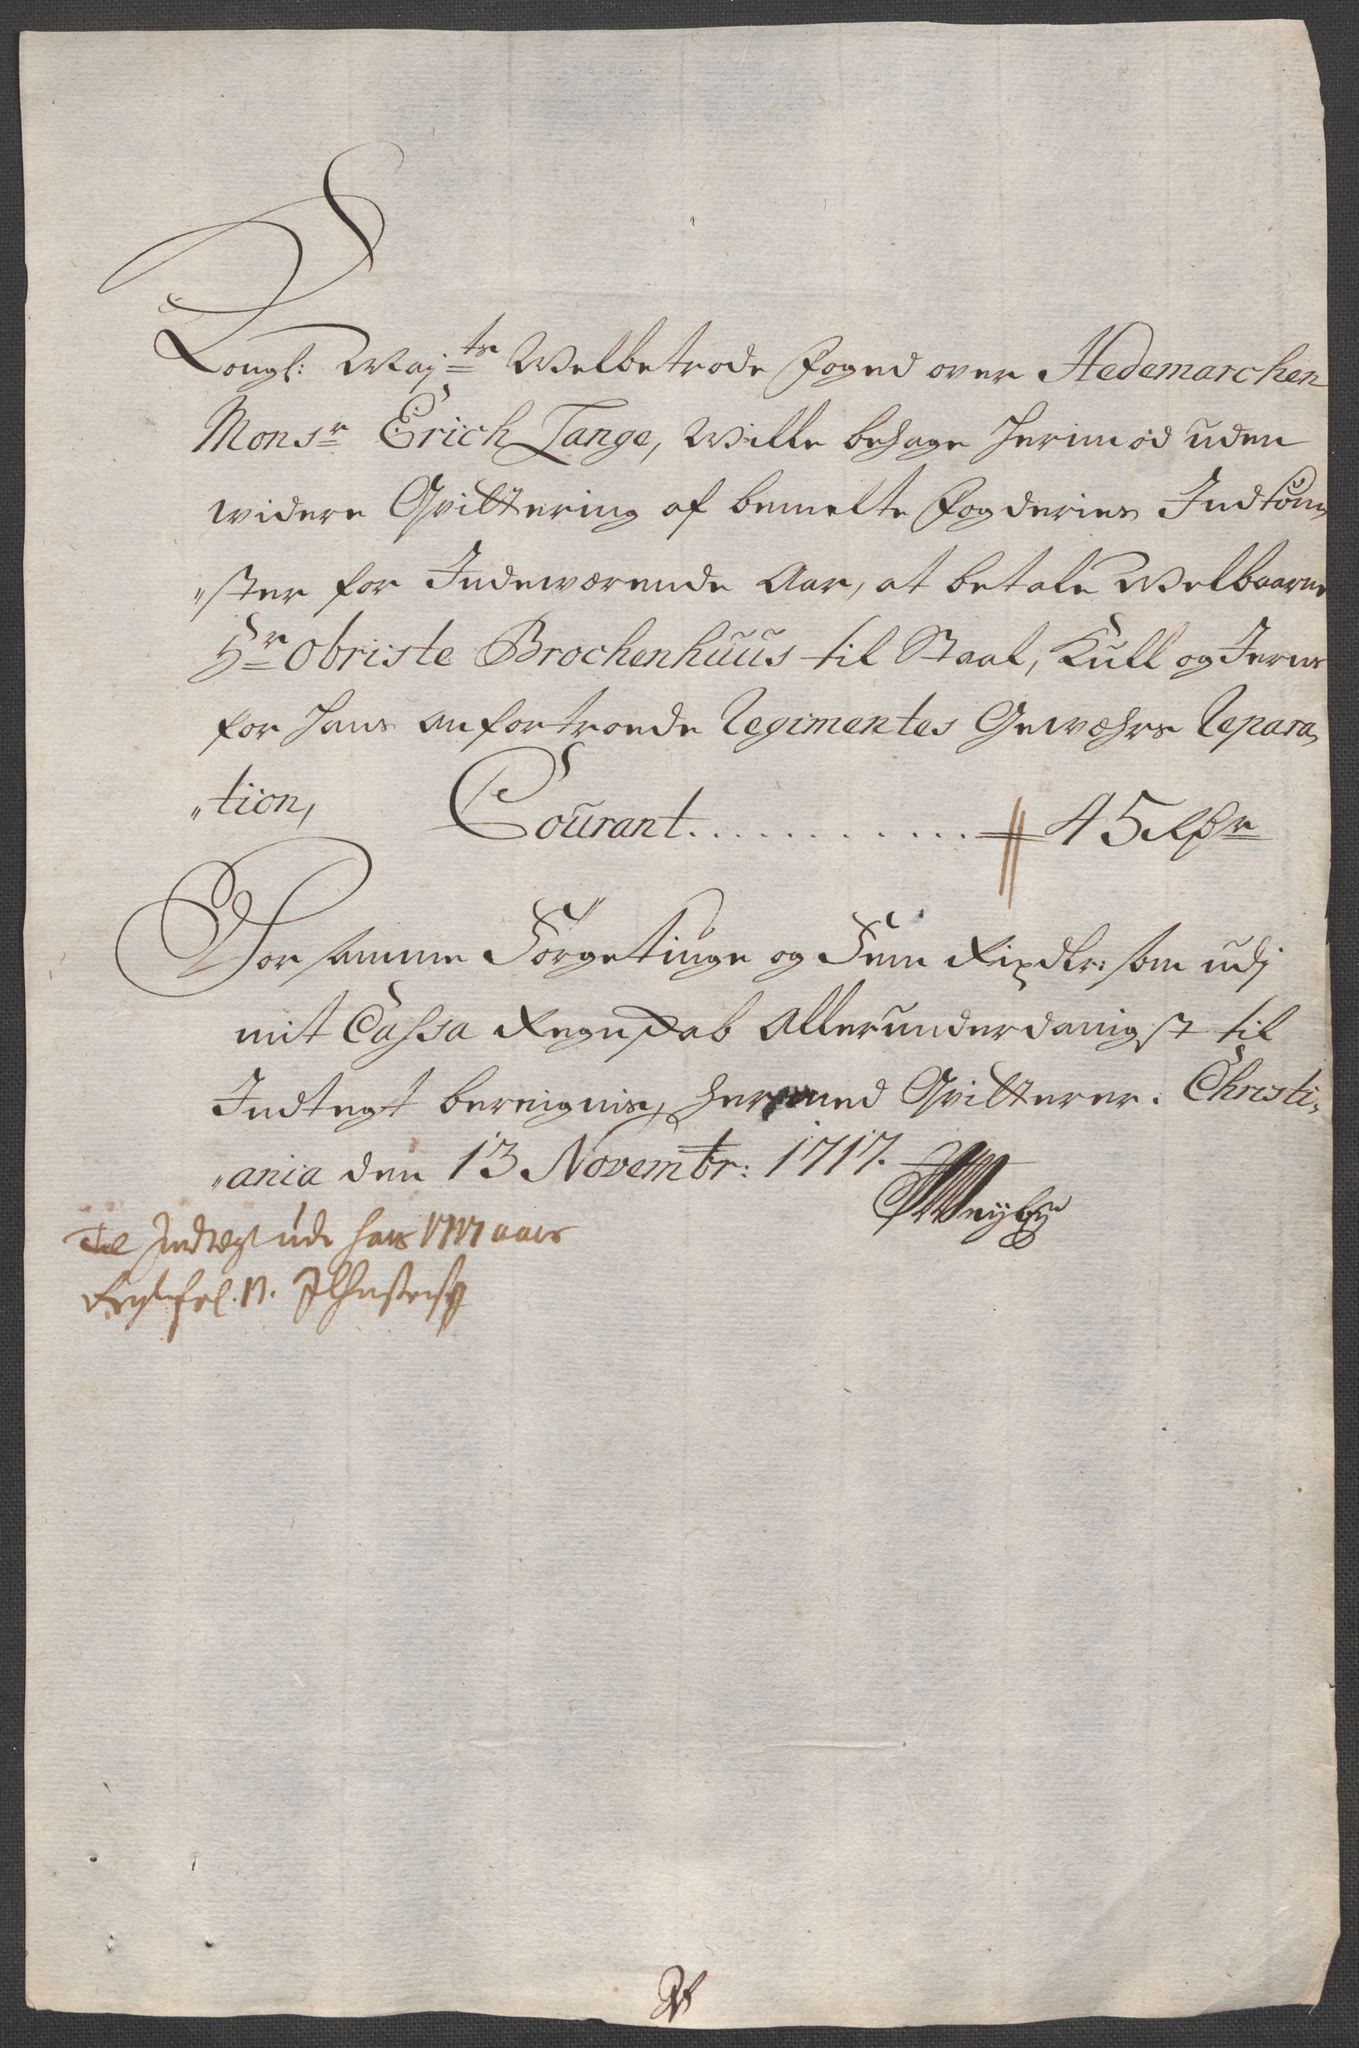 Kongl: Maj:ts Welbetrode Foged over Hedemarchen
Monsr Erich Tange, Wille behage herimod uden
widere Qvittering af bemelte Fogderies Indkom„
„ster for Indeværende Aar, at betale Welbaarne
Hr Obriste Brochenhuus til Staal, Kull og Jern
for hans anfortroede Regimentes Gewæhrs Repara„
„tion, Courant............ 45 Rdr
For samme Förgetiuge og Fem Rixdlr: som udj
mit Cassa Regnskab Allerunderdanigst til
Indtegt beregnis, hermed Qvitterer. Christi„
„ania den 13 Novembr: 1717.
Til Indtegt udi hans 1717 aars
fol. 17.